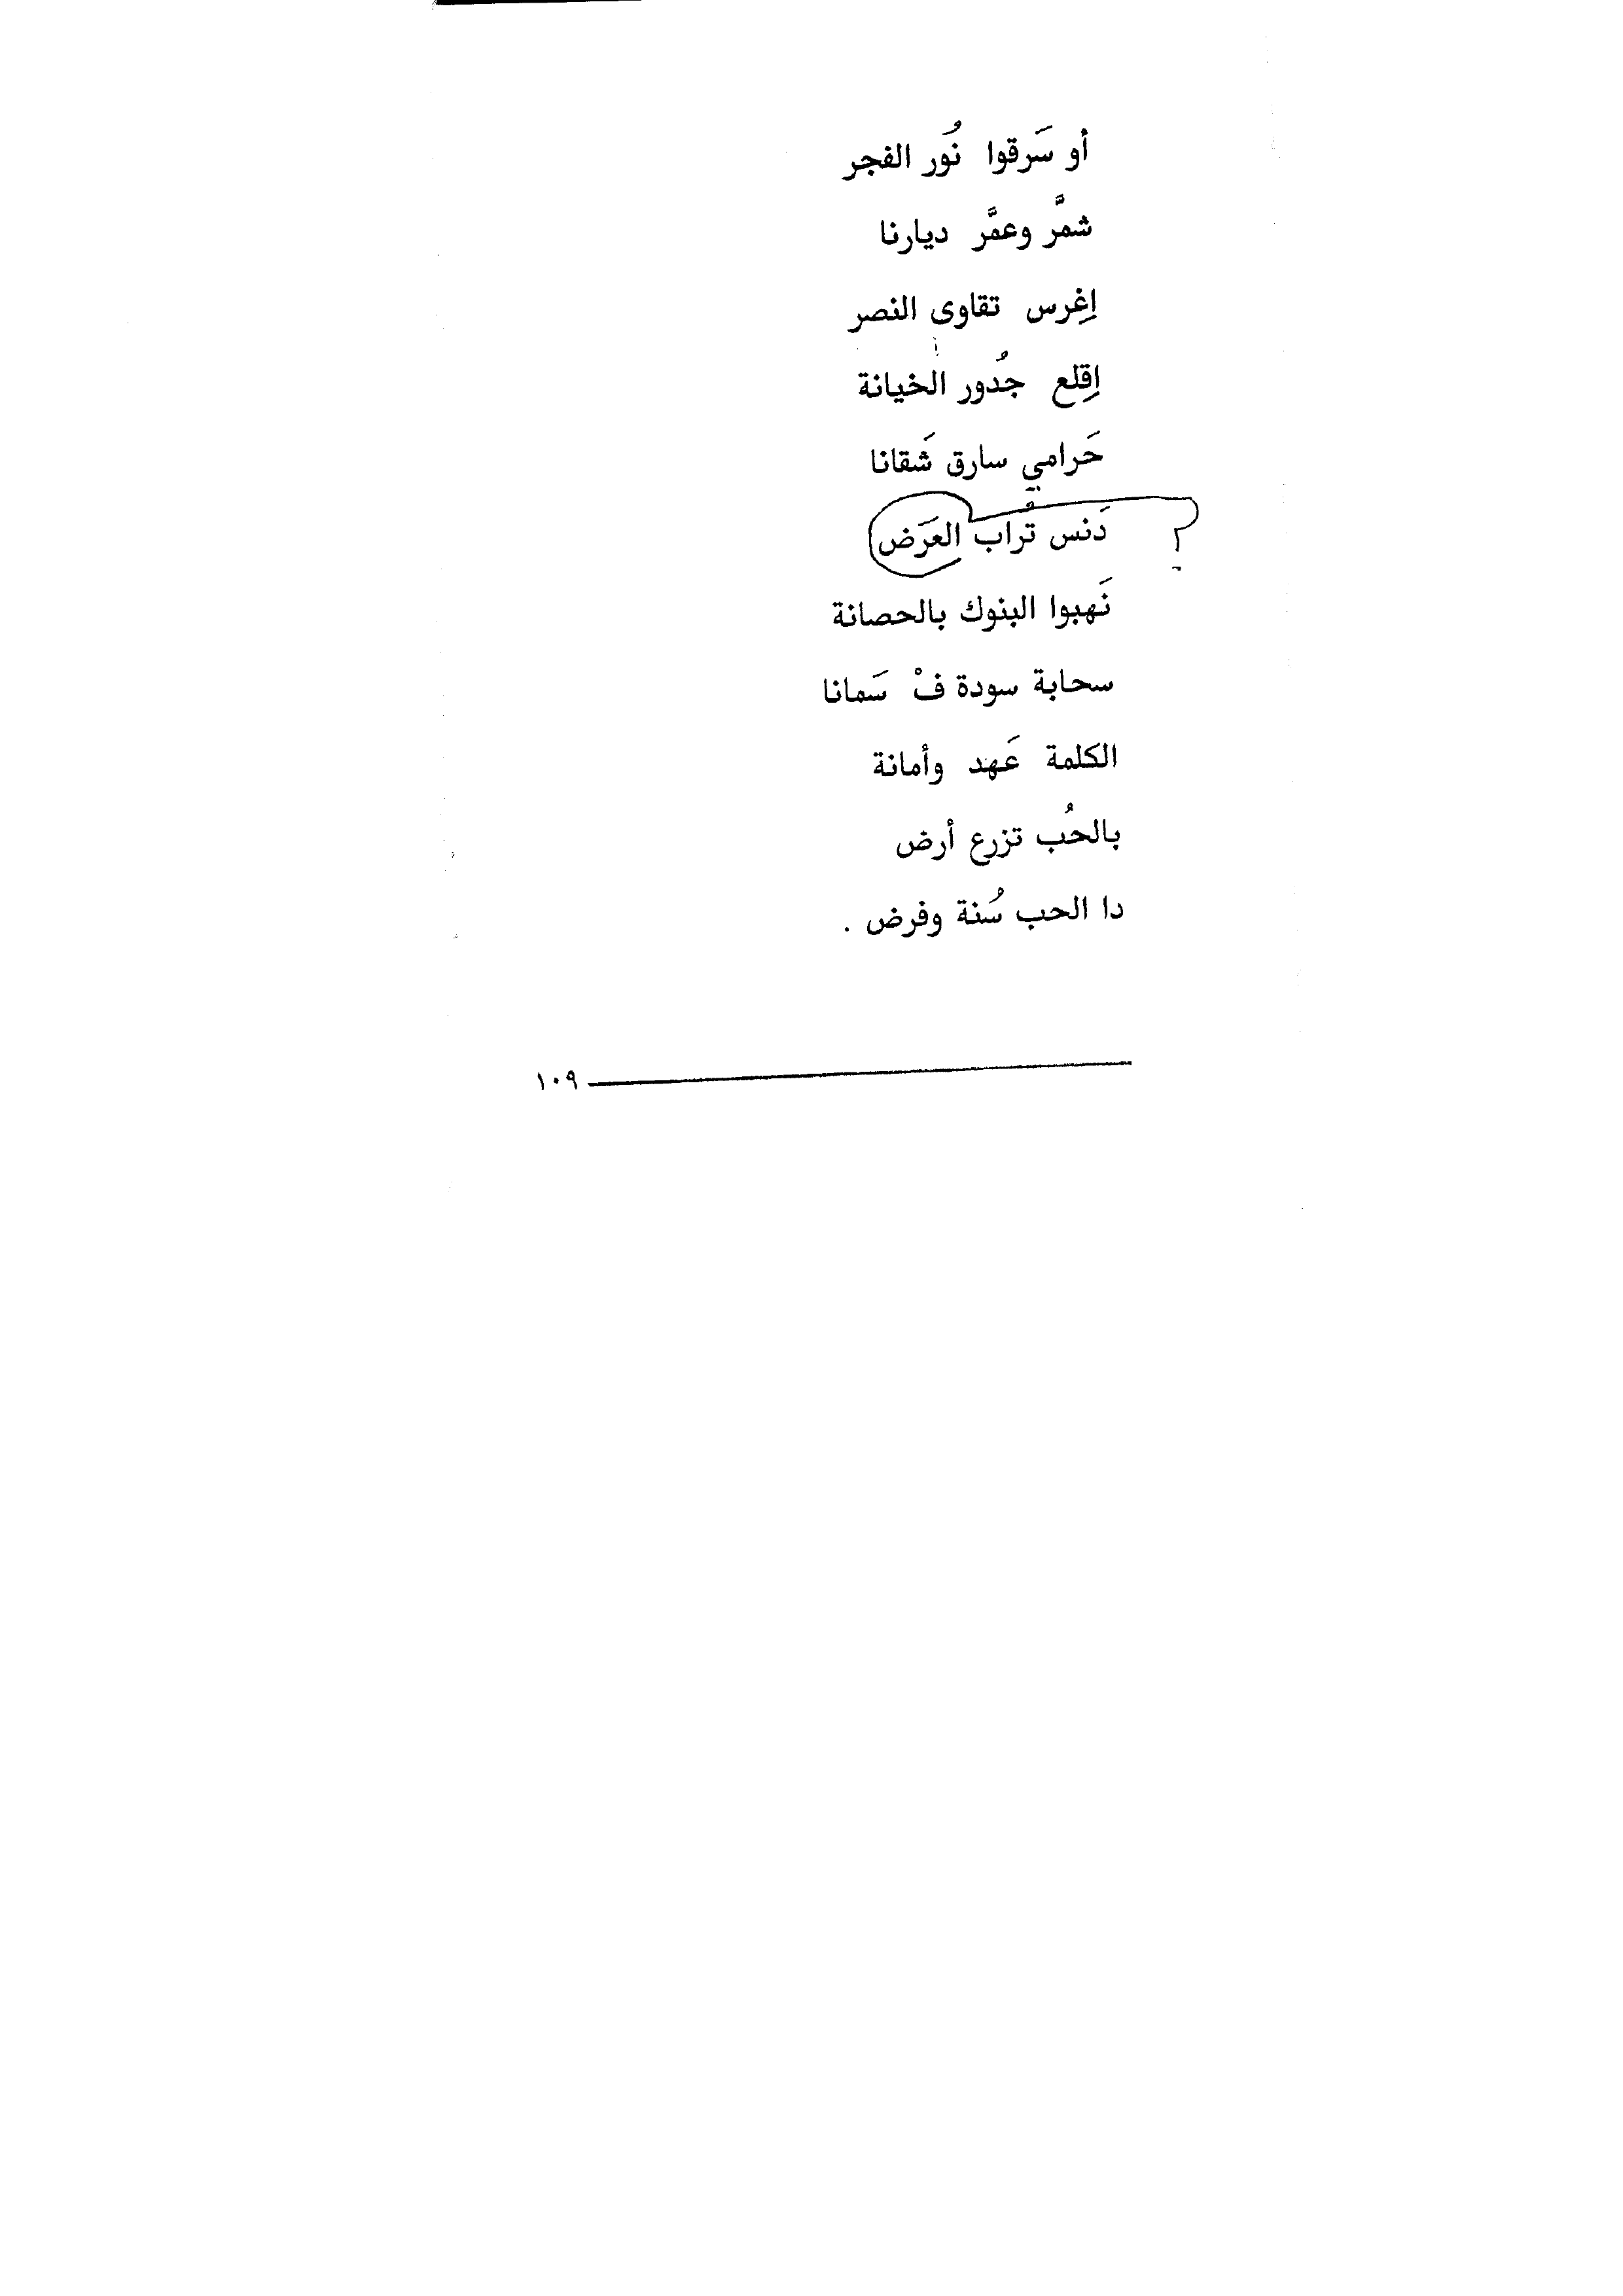 أو سَرقوا نُور الفجر
شمَّر وعمَّر ديارنا
اِغرس تقاوى النصر
اِقلع جُدور الخيانة
حَرامي سارق شَقانا
دَنس تُراب العَرَض
؟
نَهبوا البنوك بالحصانة
سحابة سودة فْ سَمانا
الكلمة عَهد وأمانة
بالحُب تزرع أرض
دا الحب سُنة وفرض .
١٠٩